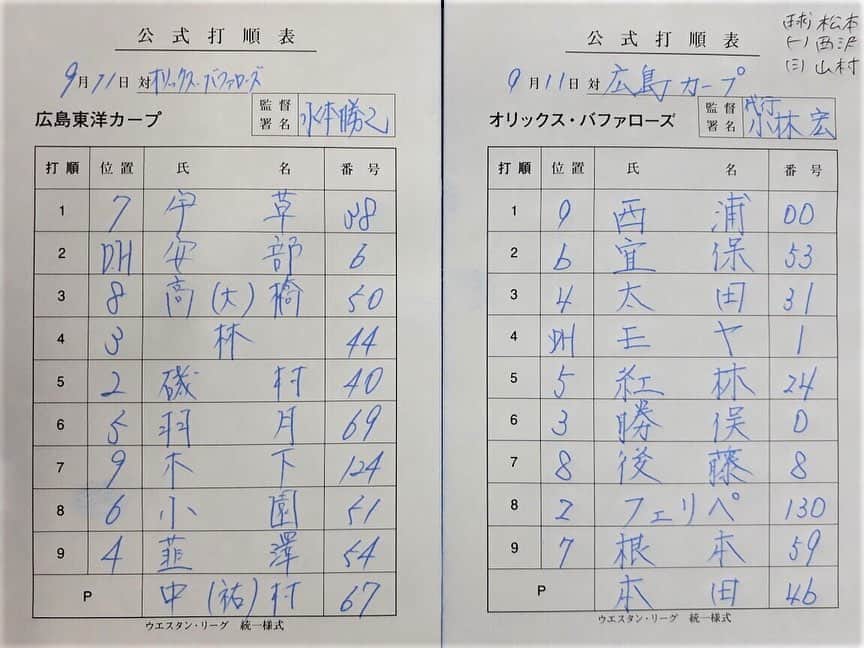 公式打順表
9月11日 対 オリックス・バファローズ
広島東洋カープ 監督署名 水本勝己
打順 位置 氏名 番号
1 7 伊草 38
2 DH 安部 6
3 8 髙(大)橋 50
4 3 林 44
5 2 磯村 40
6 5 羽月 69
7 9 木下 124
8 6 小園 51
9 4 韮澤 54
P 中(祐)村 67
ウエスタン・リーグ 統一様式
(球)松本
(一)西沢
(三)山村
公式打順表
9月11日 対 広島カープ
オリックス・バファローズ 監督署名 代行 小林宏
打順 位置 氏名 番号
1 9 西浦 00
2 6 宜保 53
3 4 太田 31
4 DH モヤ 1
5 5 紅林 24
6 3 勝俣 0
7 8 後藤 8
8 2 フェリペ 130
9 7 根本 59
P 本田 46
ウエスタン・リーグ 統一様式